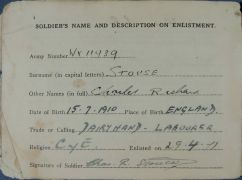 SOLDIER'S NAME AND DESCRIPTION ON ENLISTMENT.
Army Number VX 11939
Surname (in capital letters) STOUSE
Other Names (in full) Charles
Date of Birth 15.7.1910 Place of Birth ENGLAND.
Trade or Calling DAIRYHAND - LABOURER
Religion C of E Enlisted on 29.4.
Signature of Soldier Chas. R.